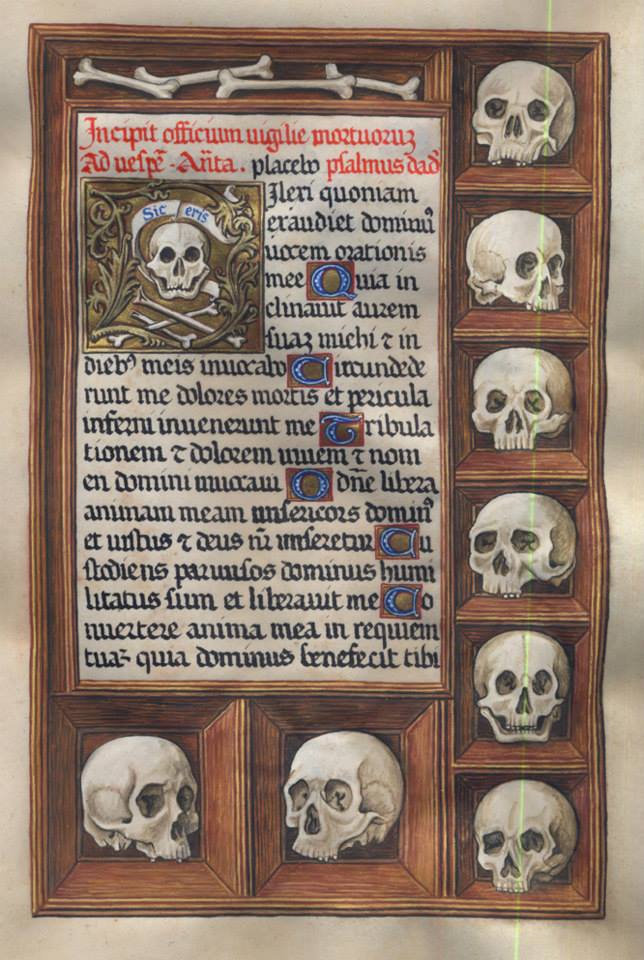 Incipit officium uigilie mortuoruz
Ad uespē - Añta. placebo psalmus dad
Sic eris
Ilexi quoniam
exaudiet dominū
uocem orationis
mee Quia in
clinauit aurem
suaz michi ⁊ in
dieb⁹ meis inuocabo Circundede
runt me dolores mortis et pericula
inferni inuenerunt me Tribula
tionem ⁊ dolorem inueni ⁊ nom
en domini inuocaui O dñe libera
animam meam misericors domin⁹
et iustus ⁊ deus nr̄ miseretur Cu
stodiens paruulos dominus humi
litatus sum et liberauit me Co
nuertere anima mea in requiem
tuaz quia dominus benefecit tibi